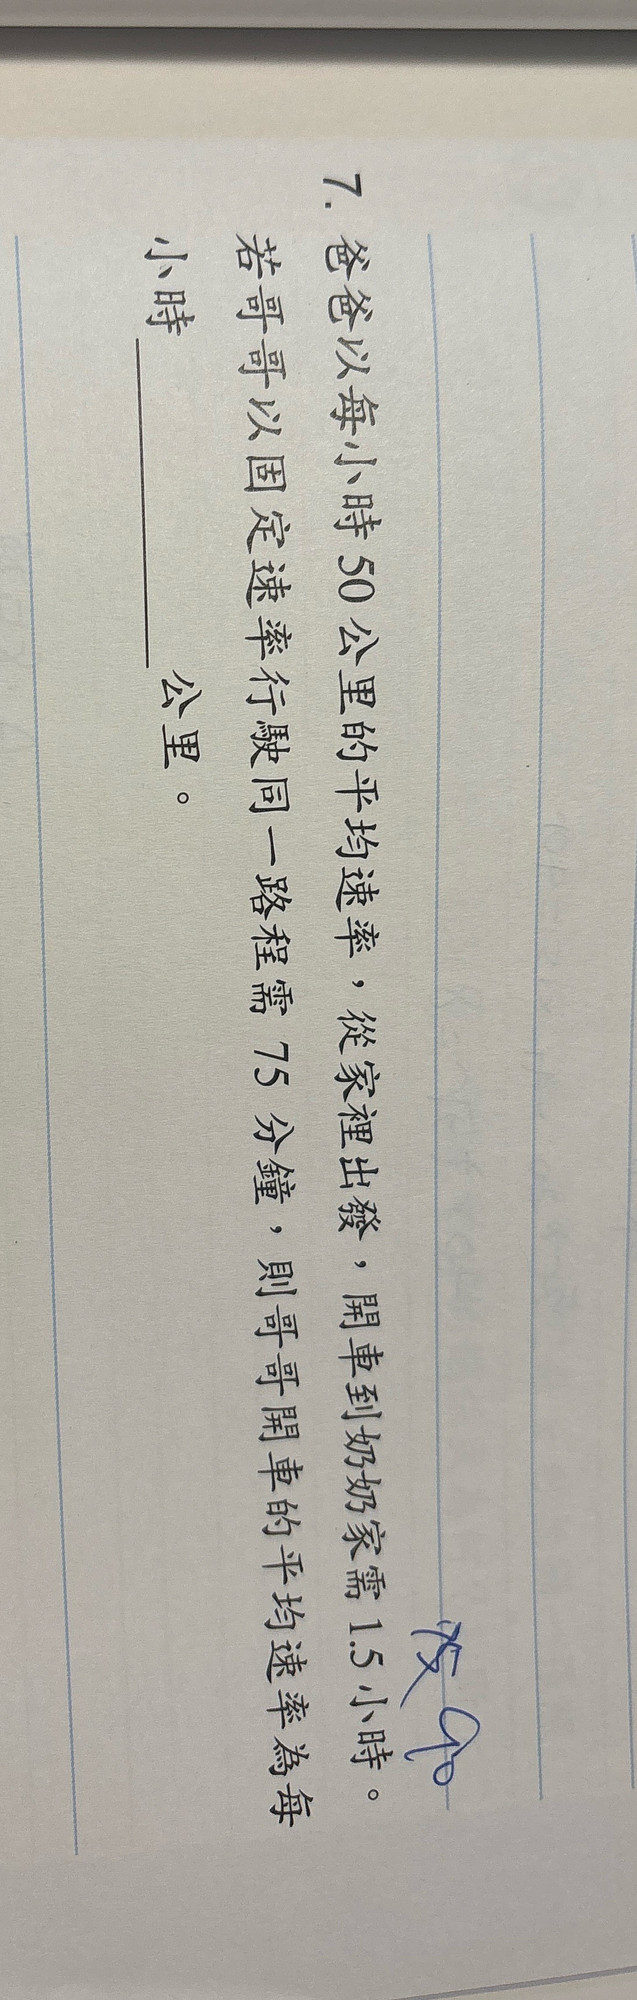 7. 爸爸以每小時 50 公里的平均速率，從家裡出發，開車到奶奶家需 1.5 小時。
若哥哥以固定速率行駛同一路程需 75 分鐘，則哥哥開車的平均速率為每
小時________公里。
90